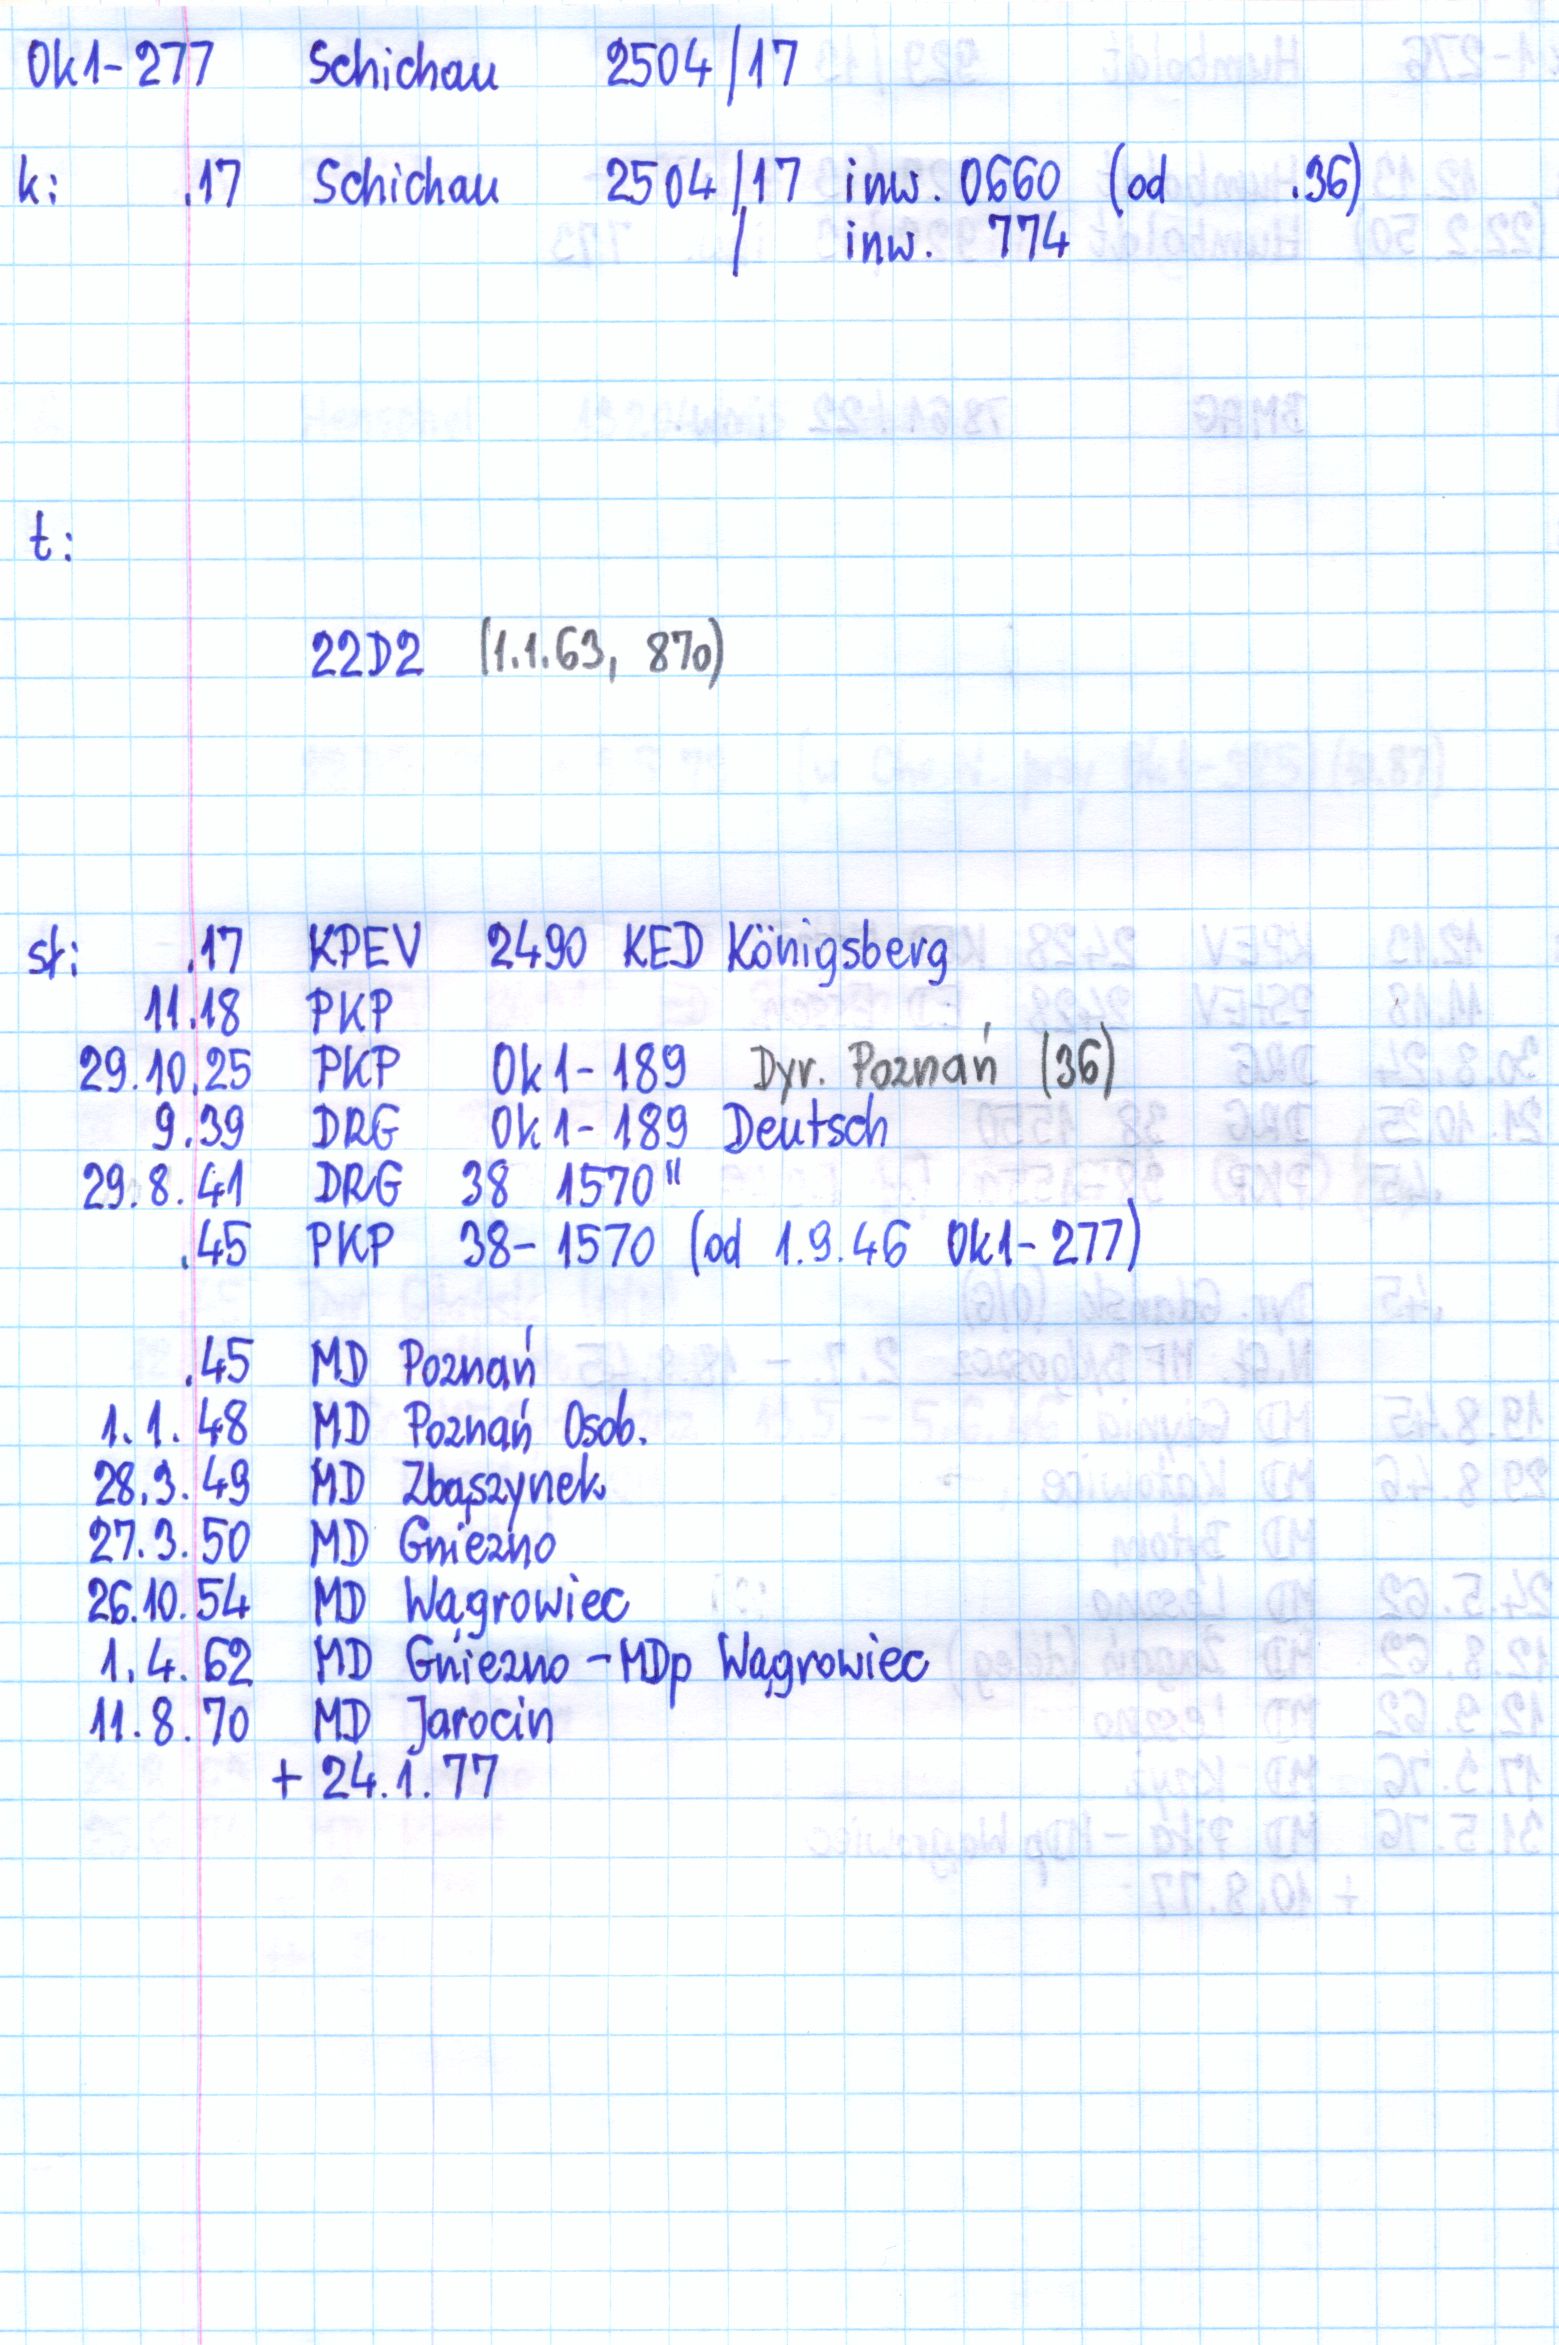 Ok1-277 Schichau 2504/17
k: .17 Schichau 2504/17 inw. 0660 (od .36)
/ inw. 774
t:
22D2 (1.1.63, 870)
st: .17 KPEV 2490 KED Königsberg
11.18 PKP
29.10.25 PKP Ok1-189 Dyr. Poznań (36)
9.39 DRG Ok1-189 Deutsch
29.8.41 DRG 38 1570"
.45 PKP 38-1570 (od 1.9.46 Ok1-277)
.45 MD Poznań
1.1.48 MD Poznań Osob.
28.3.49 MD Zbąszynek
27.3.50 MD Gniezno
26.10.54 MD Wągrowiec
1.4.62 MD Gniezno-MDp Wągrowiec
11.8.70 MD Jarocin
+ 24.1.77